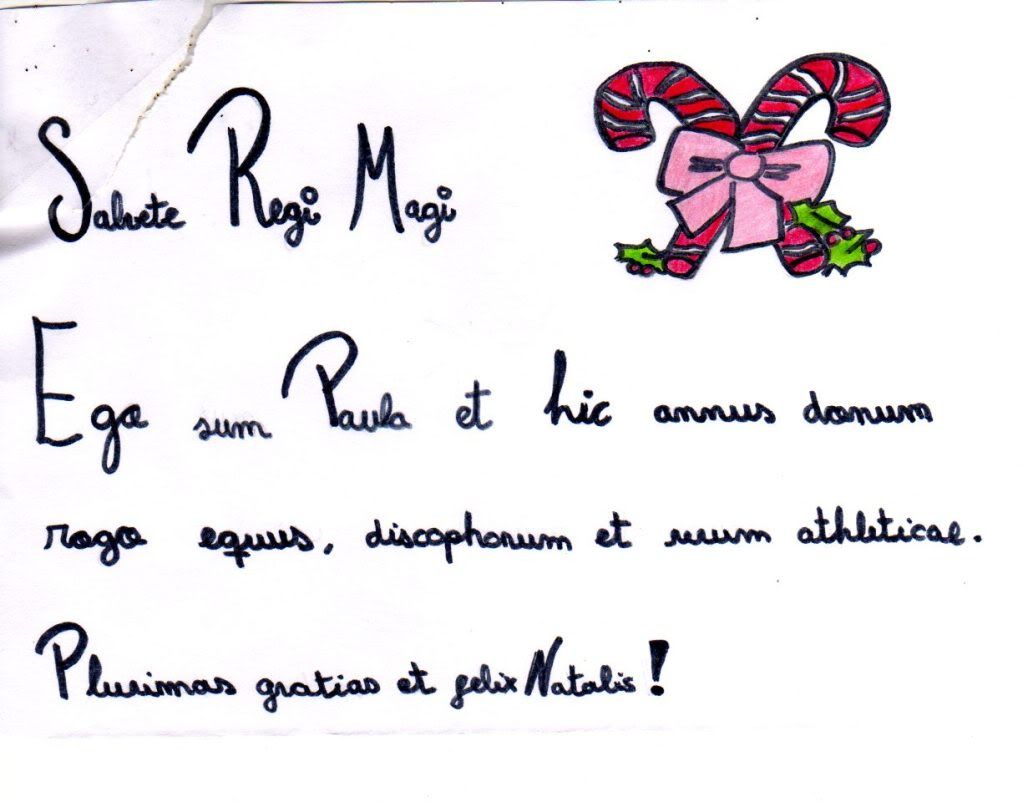 Salvete Regi Magi
Ego sum Paula et hic annus donum
rogo equus, discophonum et athleticae.
Plurimas gratias et felix Natalis!